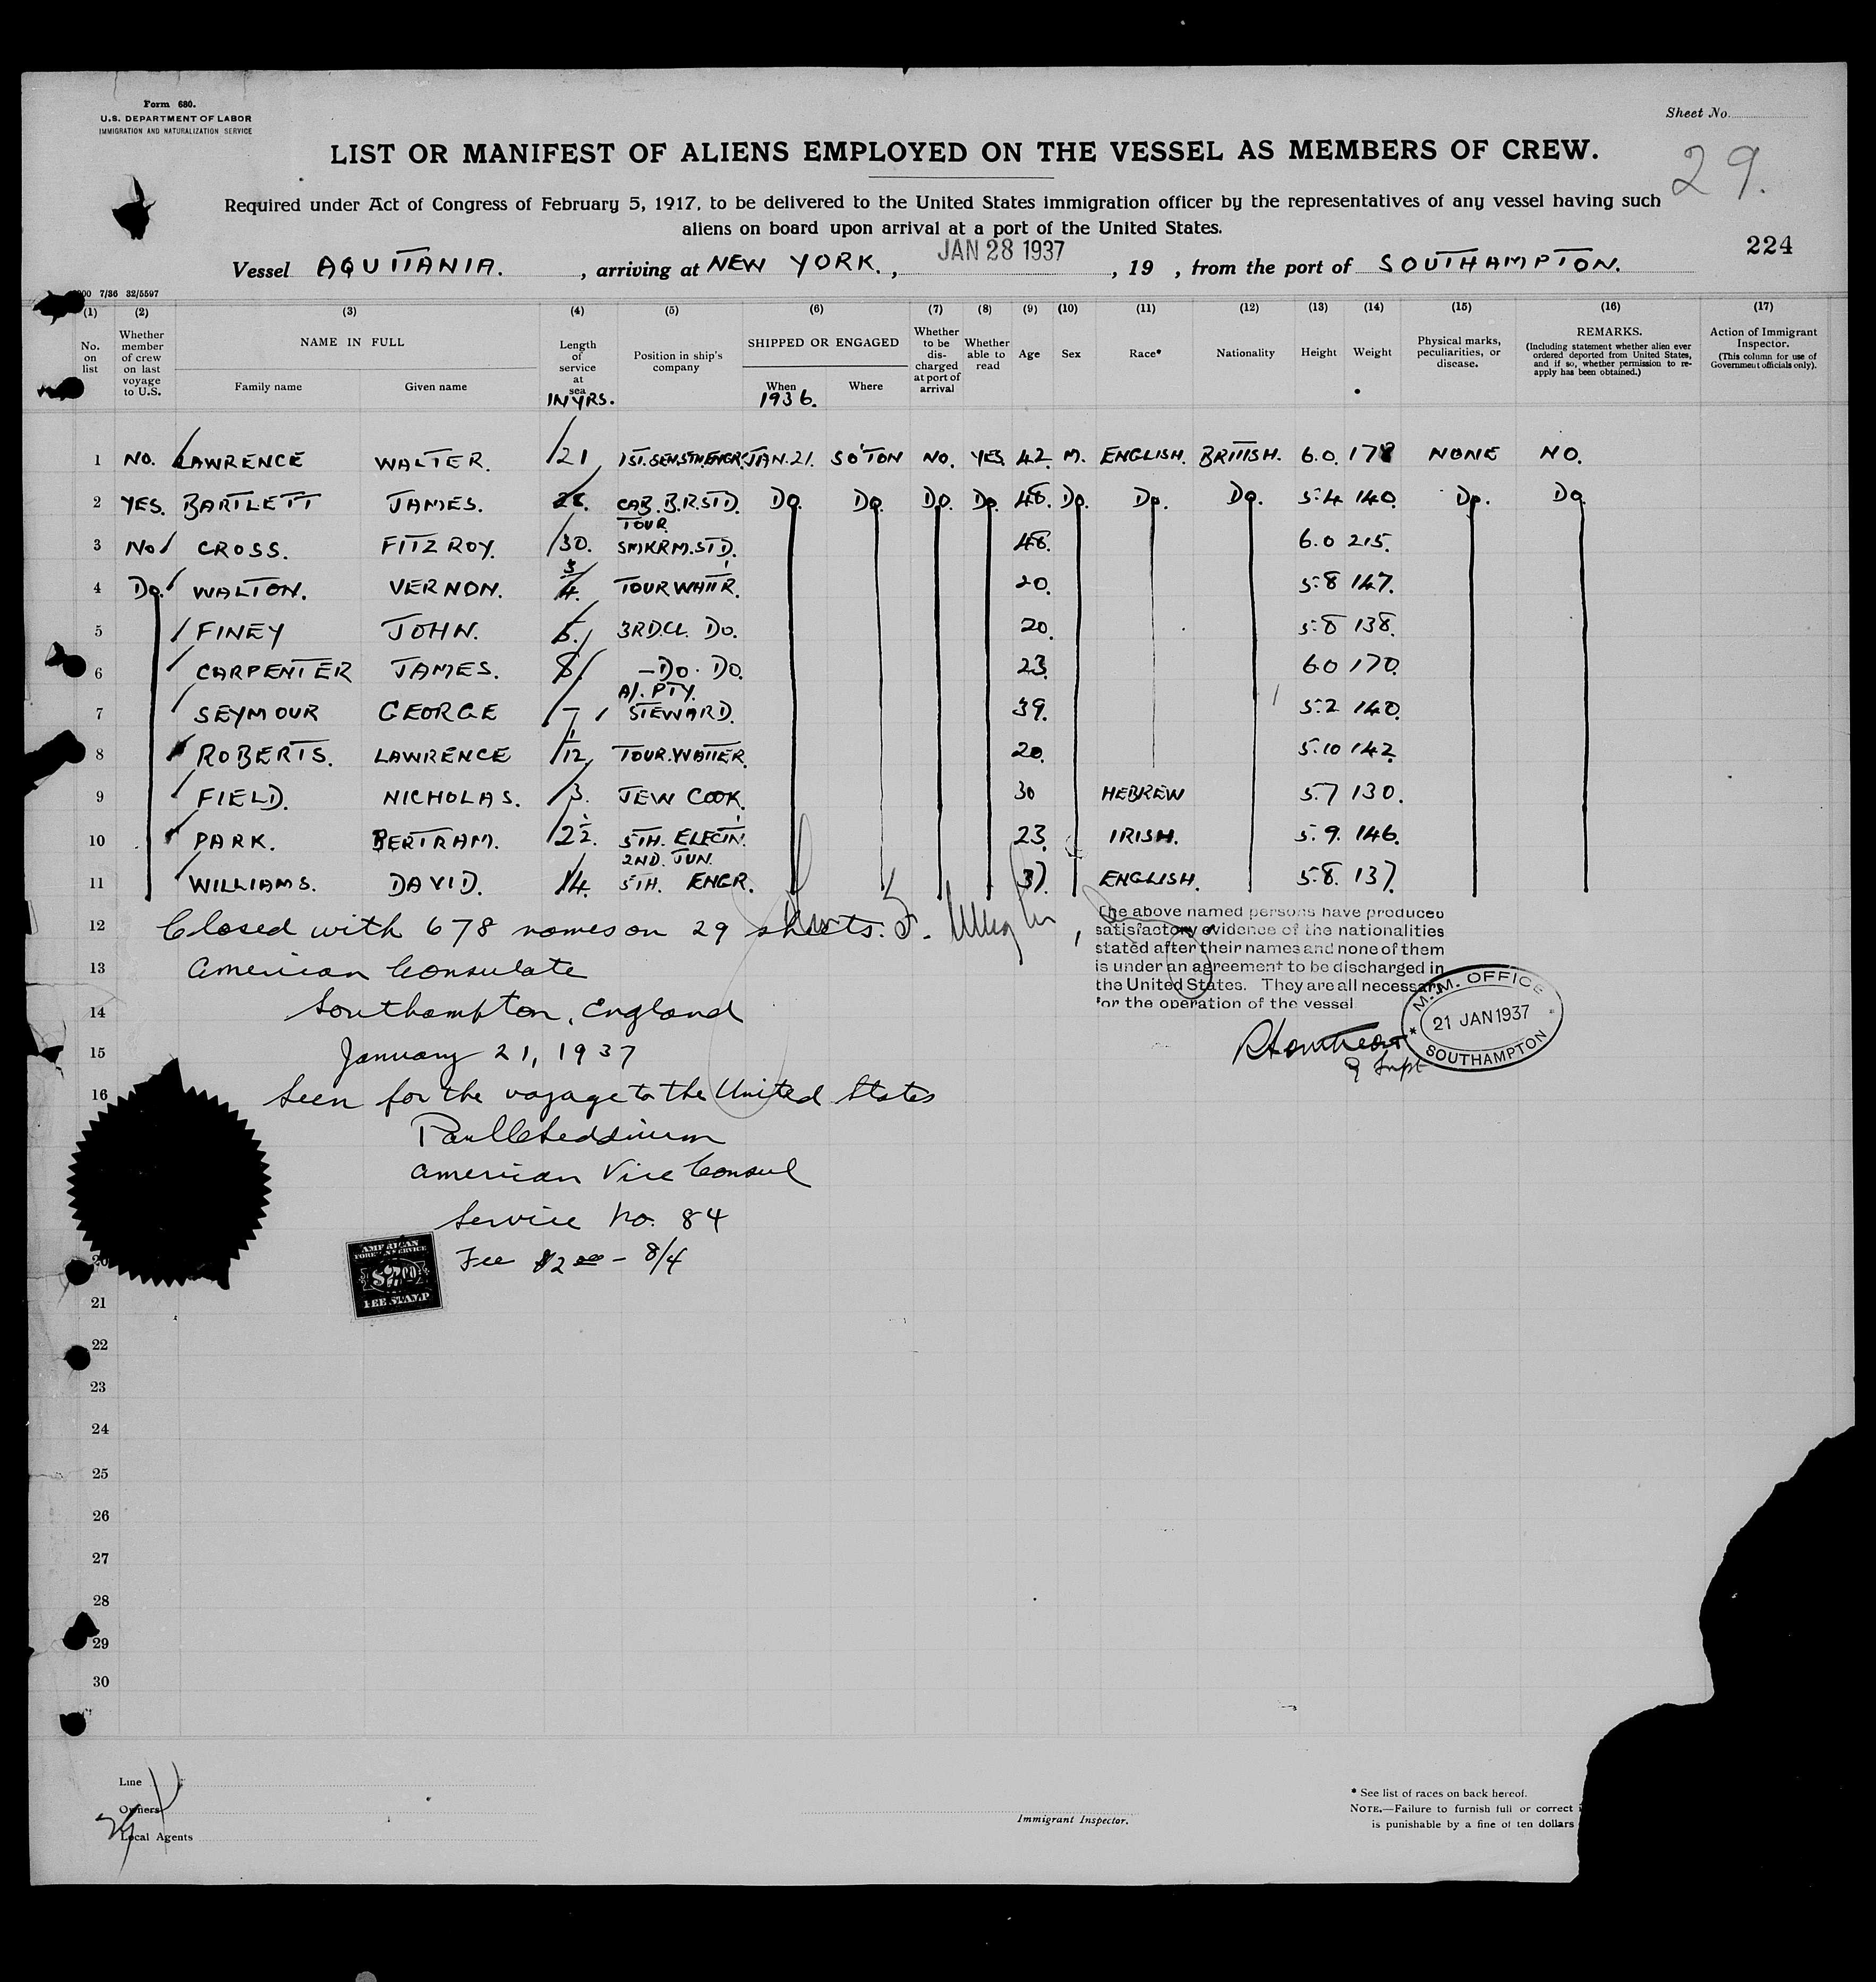 Form 680.
U.S. DEPARTMENT OF LABOR
IMMIGRATION AND NATURALIZATION SERVICE
Sheet No.
LIST OR MANIFEST OF ALIENS EMPLOYED ON THE VESSEL AS MEMBERS OF CREW.
29.
Required under Act of Congress of February 5, 1917, to be delivered to the United States immigration officer by the representatives of any vessel having such
aliens on board upon arrival at a port of the United States.
224
Vessel AQUITANIA. , arriving at NEW YORK. , JAN 28 1937 , 19 , from the port of SOUTHAMPTON.
7/36 32/5597
(1) (2) (3) (4) (5) (6) (7) (8) (9) (10) (11) (12) (13) (14) (15) (16) (17)
No. on list
Whether member of crew on last voyage to U.S.
NAME IN FULL
Family name
Given name
Length of service at sea
IN YRS.
Position in ship's company
SHIPPED OR ENGAGED
When
1936.
Where
Whether to be discharged at port of arrival
Whether able to read
Age
Sex
Race*
Nationality
Height
Weight
Physical marks, peculiarities, or disease.
REMARKS.
(Including statement whether alien ever ordered deported from United States, and if so, whether permission to re-apply has been obtained.)
Action of Immigrant Inspector.
(This column for use of Government officials only).
1 NO. LAWRENCE WALTER. 21 1ST.SEN.5TH.ENGR. JAN.21. SO'TON NO. YES 42. M. ENGLISH. BRITISH. 6.0. 178 NONE NO.
2 YES. BARTLETT JAMES. CAB. B.R.STD. DO. DO. DO DO. 48. DO. DO. DO. 5:4 140. DO. DO.
3 NO CROSS. FITZROY. 30. TOUR SMKRM.STD. 48. 6.0 215.
4 DO. WALTON. VERNON. 3/4. TOUR WAITR. 20. 5:8 147.
5 FINEY JOHN. 5. 3RD.CL. DO. 20. 5:8 138.
6 CARPENTER JAMES. 8 -DO. DO. 23. 6.0 170.
7 SEYMOUR GEORGE 7 A/. PTY. STEWARD. 39. 5:2 140.
8 ROBERTS. LAWRENCE 1/12. TOUR.WAITER. 20. 5:10 142.
9 FIELD. NICHOLAS. 3. JEW COOK. 30 HEBREW 5.7 130.
10 PARK. BERTRAM. 2½. 5TH. ELECTN. 23. IRISH. 5.9. 146.
11 WILLIAMS. DAVID. 14. 2ND. JUN. 5TH. ENGR. 37. ENGLISH. 5.8. 137.
12 Closed with 678 names on 29 sheets.
The above named persons have produced
satisfactory evidence of the nationalities
stated after their names and none of them
is under an agreement to be discharged in
the United States. They are all necessary
for the operation of the vessel
13 American Consulate
14 Southampton, England
M.M. OFFICE
21 JAN 1937
SOUTHAMPTON
15 January 21, 1937
16 Seen for the voyage to the United States
American Vice Consul
Service No. 84
Fee $2.00 - 8/4
AMERICAN
FOREIGN SERVICE
$2.00
FEE STAMP
20
21
22
23
24
25
26
27
28
29
30
Line
Owners
Local Agents
Immigrant Inspector.
* See list of races on back hereof.
NOTE.—Failure to furnish full or correct
is punishable by a fine of ten dollars